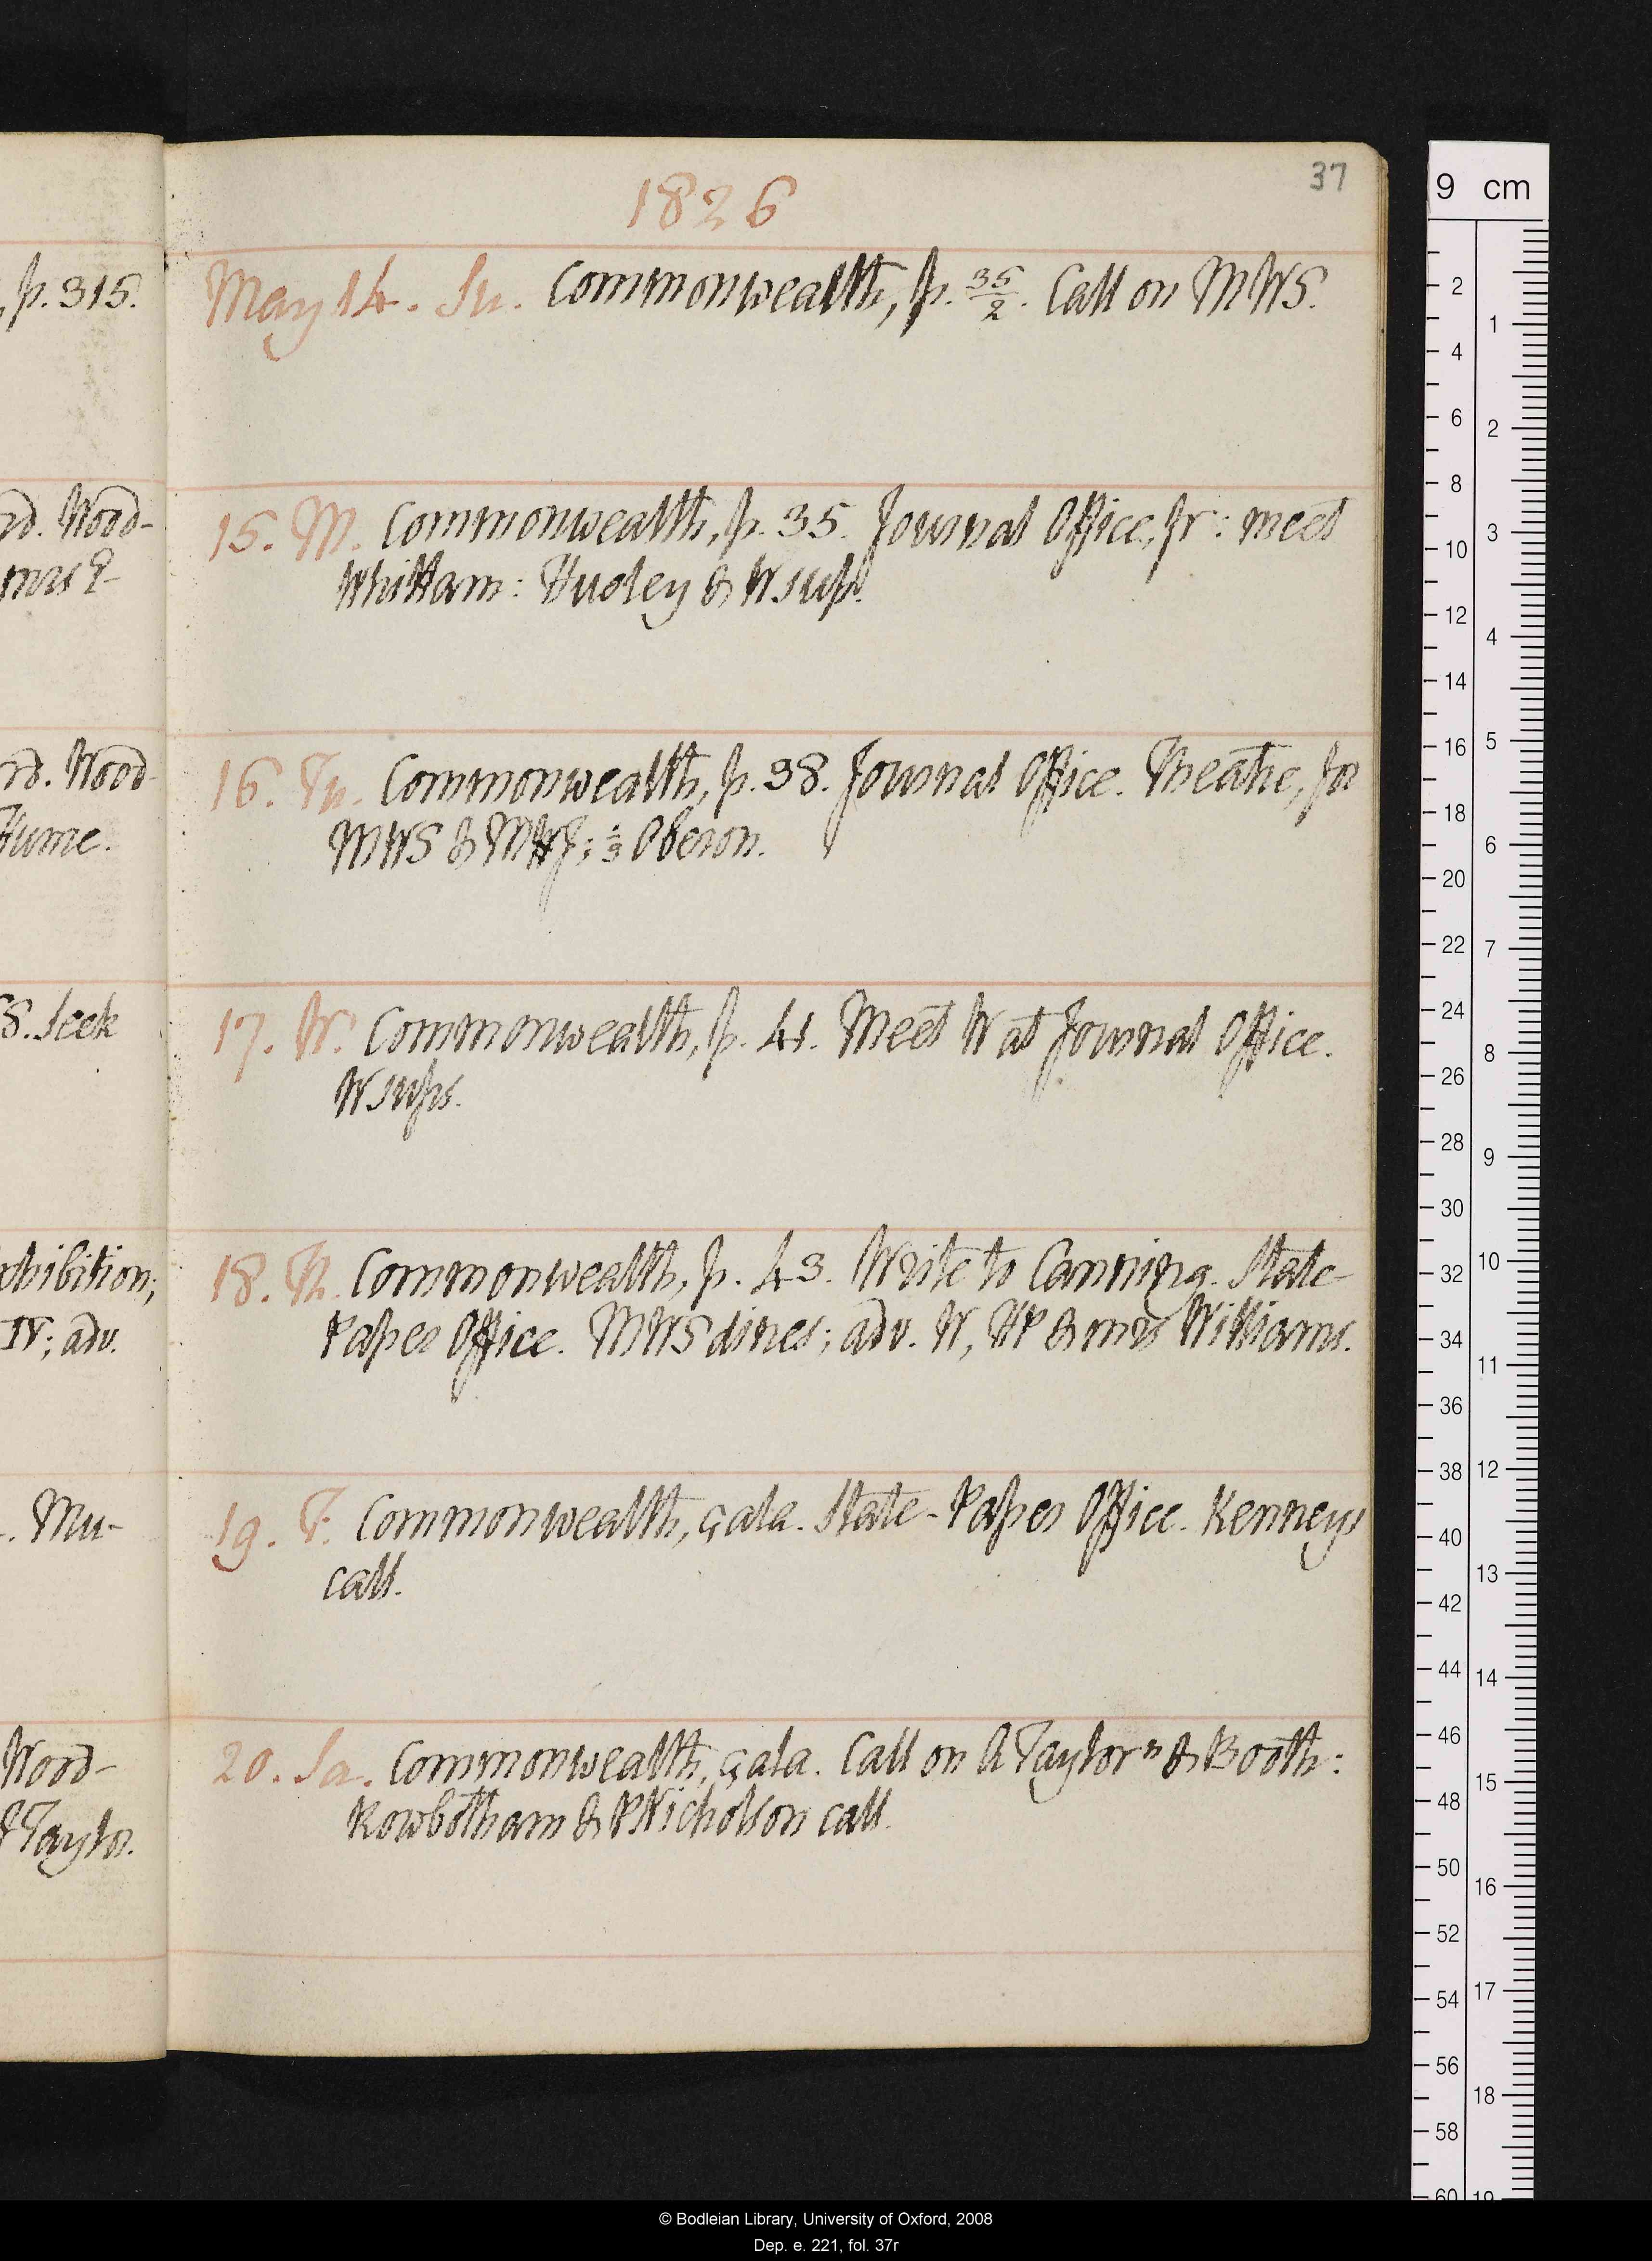 37
1826
May 14. Su. Commonwealth, p. 35/2. Call on MWS.
15. M. Commonwealth, p. 35. Journal Office, fr: meet
Whittam: Hudley & W sup.
16. Tu. Commonwealth, p. 38. Journal Office. Theatre, for
MWS & MWJ; ⅓ Oberon.
17. W. Commonwealth, p. 41. Meet W at Journal Office.
W sups.
18. Th. Commonwealth, p. 43. Write to Canning. State-
Paper Office. MWS dines; adv. W, HP & mrs Williams.
19. F. Commonwealth, çala. State-Paper Office. Kenneys
call.
20. Sa. Commonwealth, çala. Call on A Taylor n & Booth:
Rowbotham & P Nicholson call.
, p. 315.
rd. Wood-
mrs G-
rd. Wood-
Hume.
S. Seek
xhibition;
IV; adv.
. Mu-
Wood-
Taylor.
9 cm
2 4 6 8 10 12 14 16 18 20 22 24 26 28 30 32 34 36 38 40 42 44 46 48 50 52 54 56 58 60
1 2 3 4 5 6 7 8 9 10 11 12 13 14 15 16 17 18 19
© Bodleian Library, University of Oxford, 2008
Dep. e. 221, fol. 37r